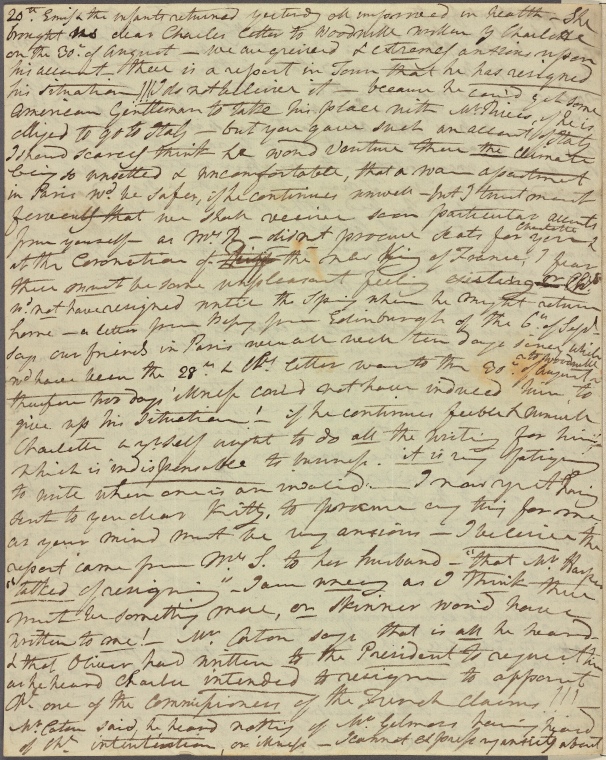 20th. Emily & the infants returned yesterday all improved in health – She
brought us dear Charles letter to Woodville written by Charlotte
on the 30th. of August – we are grieved & extremely anxious upon
his account – there is a report in Town that he has resigned
his situation !!! I do not believe it – because he could get some
American Gentleman to take his place with Mr Rives, if
obliged to go to Italy – but you gave such an account of Italy
I should scarcely think he would venture there the climate
being so unsettled & uncomfortable, that a warm apartment
in Paris wd. be safer, if he continues unwell – but I trust most
fervently that we shall receive soon particular accounts
from yourself – as Mrs R – didnt procure seats for you & Charlotte
at the Coronation of the new King of France, I fear
there must be some unpleasant feeling existing or Chs
wd. not have resigned until the Spring when he might return
home – a letter from Betsy from Edinburgh of the 6th. of Sept.
says our friends in Paris were all well ten days since which
wd have been the 28th & Chs letter was to the 30th of August & to Woodville
therefore two days illness could not have induced him to
give up his Situation! – if he continues feeble & unwell
Charlotte & yrself ought to do all the writing for him
which is indispensable to business. it is very fatiguing
to write when one is an invalid. – I now regret having
sent to you dear Kitty, to procure any thing for me
as your mind must be very anxious – I believe the
report came from Mrs S. to her husband – "that Mr Harper
"talked of resigning" – I am uneasy as I think there
must be something more, or Skinner would have
written to me! – Mr. Caton says that is all he heard
& that Oliver had written to the President to request him
as he heard Charles intended to resign to appoint
one of the Commissioners of the French Claims !!! –
Mr. Caton said, he heard nothing of Mr Gilmors having heard
of Chs. intention, or illness – I cannot express my anxiety about